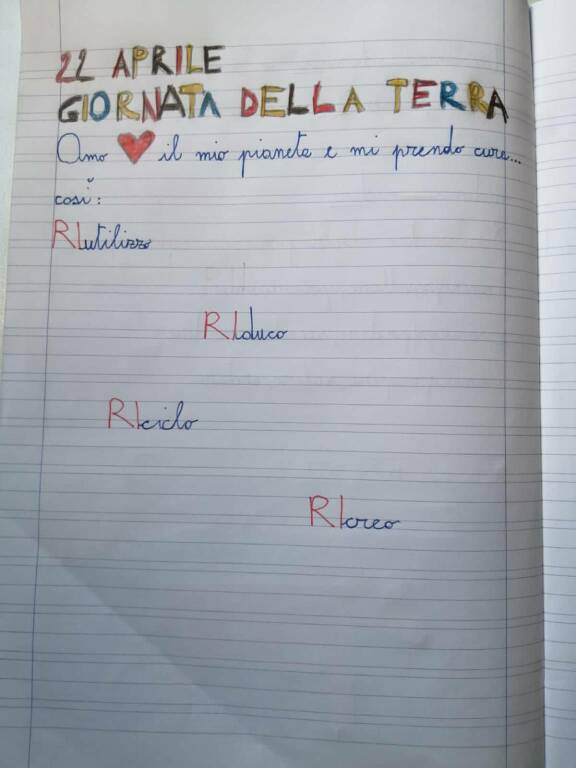 22 APRILE
GIORNATA DELLA TERRA
Amo il mio pianeta e mi prendo cura...
così:
RIutilizzo
RIduco
RIciclo
RIcreo